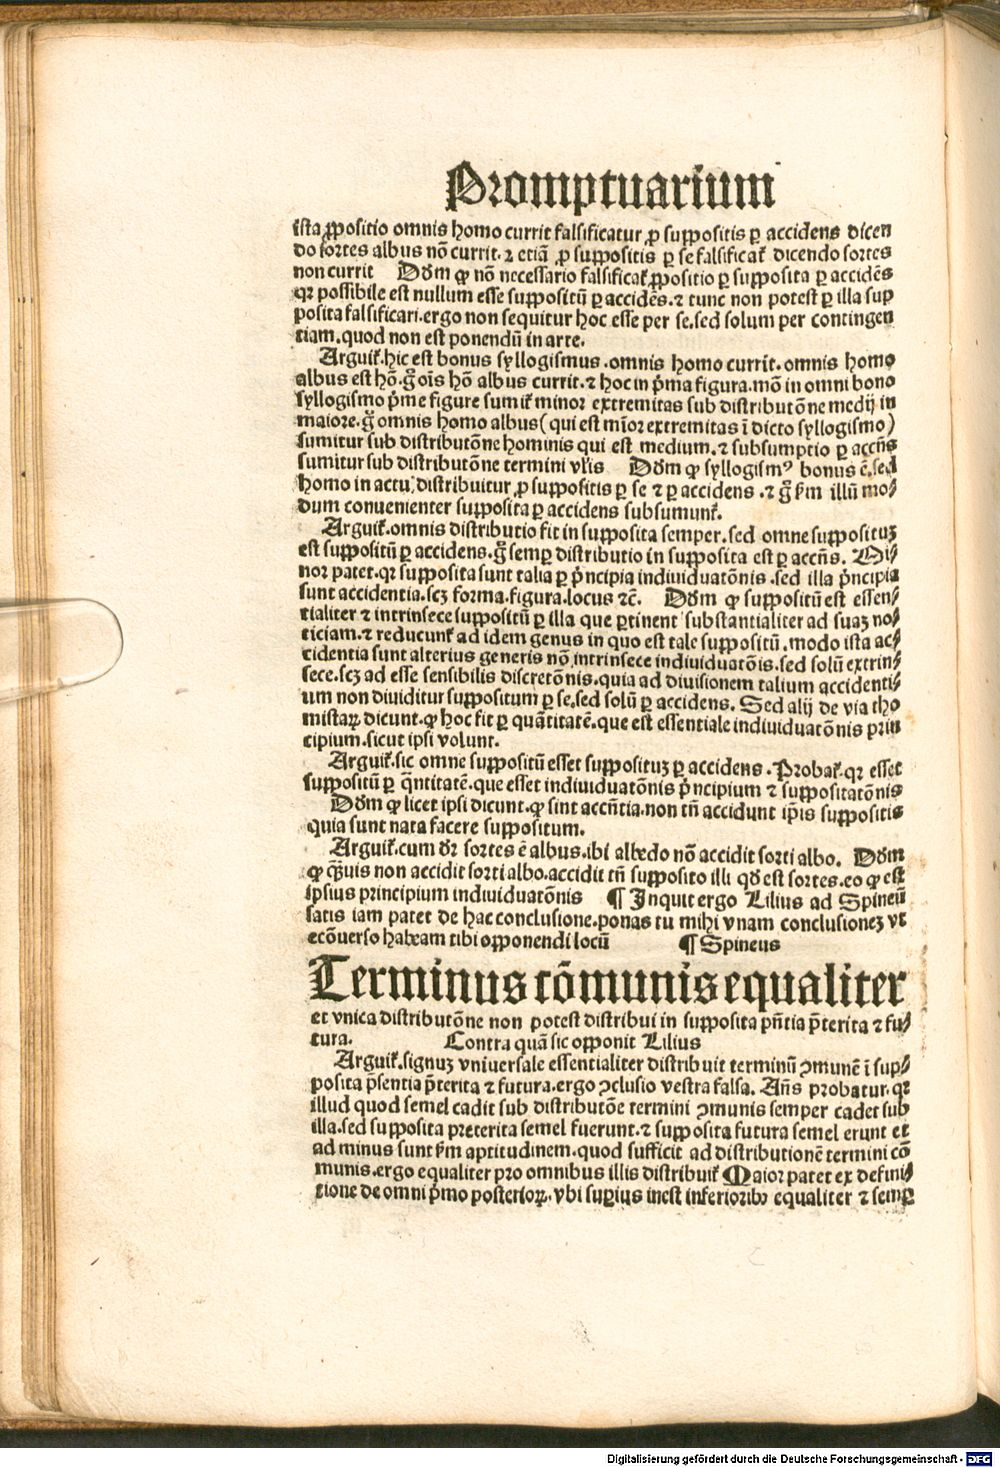 Promptuarium
ista ꝓpositio omnis homo currit falsificatur ꝓ suppositis ꝑ accidens dicen
do sortes albus nō currit. ⁊ etiā ꝓ suppositis ꝑ se falsificat̄ dicendo sortes
non currit Dōm ꝙ nō necessario falsificat̄ ꝓpositio ꝑ supposita ꝑ accidēs
qꝛ possibile est nullum esse suppositū ꝑ accidēs. ⁊ tunc non potest ꝑ illa sup
posita falsificari. ergo non sequitur hoc esse per se. sed solum per contingen
tiam. quod non est ponendū in arte.
Arguit̄. hic est bonus syllogismus. omnis homo currit. omnis homo
albus est hō. gͦ oīs hō albus currit. ⁊ hoc in p̄ma figura. mō in omni bono
syllogismo p̄me figure sumit̄ minor extremitas sub distributōne medij in
maiore. gͦ omnis homo albus (qui est mīor extremitas ī dicto syllogismo)
sumitur sub distributōne hominis qui est medium. ⁊ subsumptio ꝑ accn̄s
sumitur sub distributōne termini vl̄is Dōm ꝙ syllogismꝰ bonus ē. sed
homo in actu distribuitur ꝓ suppositis ꝑ se ⁊ ꝑ accidens. ⁊ gͦ ẜm illū mo⸗
dum conuenienter supposita ꝑ accidens subsumunt̄.
Arguit̄. omnis distributio fit in supposita semper. sed omne supposituꝫ
est suppositū ꝑ accidens. gͦ semꝑ distributio in supposita est ꝑ accn̄s. Mi⸗
nor patet. qꝛ supposita sunt talia ꝑ p̄ncipia indiuiduatōnis. sed illa p̄ncipia
sunt accidentia. scꝫ forma. figura. locus ⁊c̄. Dōm ꝙ suppositū est essen⸗
tialiter ⁊ intrinsece suppositū ꝑ illa que ꝑtinent substantialiter ad suaꝫ no⸗
ticiam. ⁊ reducunt̄ ad idem genus in quo est tale suppositū. modo ista ac⸗
cidentia sunt alterius generis nō intrinsece indiuiduatōis. sed solū extrin⸗
sece. scꝫ ad esse sensibilis discretōnis. quia ad diuisionem talium accidenti⸗
um non diuiditur suppositum ꝑ se. sed solū ꝑ accidens. Sed alij de via tho
mistaꝝ dicunt. ꝙ hoc fit ꝑ quātitatē. que est essentiale indiuiduatōnis prin
cipium. sicut ipsi volunt.
Arguit̄. sic omne suppositū esset supposituꝫ ꝑ accidens. Probat̄. qꝛ esset
suppositū ꝑ qn̄titatē. que esset indiuiduatōnis p̄ncipium ⁊ suppositatōnis
Dōm ꝙ licet ipsi dicunt. ꝙ sint accn̄tia. non tn̄ accidunt ip̄is suppositis
quia sunt nata facere suppositum.
Arguit̄. cum dꝛ sortes ē albus. ibi albedo nō accidit sorti albo. Dōm
ꝙ q̄uis non accidit sorti albo. accidit tn̄ supposito illi qd̄ est sortes. eo ꝙ est
ipsius principium indiuiduatōnis ¶ Inquit ergo Lilius ad Spineū
satis iam patet de hac conclusione. ponas tu mihi vnam conclusioneꝫ vt
ecōuerso habeam tibi opponendi locū ¶ Spineus
Terminus cōmunis equaliter
et vnica distributōne non potest distribui in supposita pn̄tia p̄terita ⁊ fu⸗
tura. Contra quā sic opponit Lilius
Arguit̄. signuꝫ vniuersale essentialiter distribuit terminū ꝯmunē ī sup⸗
posita p̄sentia p̄terita ⁊ futura. ergo ꝯclusio vestra falsa. An̄s probatur. qꝛ
illud quod semel cadit sub distributōe termini ꝯmunis semper cadet sub
illa. sed supposita preterita semel fuerunt. ⁊ supposita futura semel erunt et
ad minus sunt ẜm aptitudinem. quod sufficit ad distributionē termini cō
munis. ergo equaliter pro omnibus illis distribuit̄ Maior patet ex defini⸗
tione de omni p̄mo posterioꝝ. vbi suꝑius inest inferioribꝰ equaliter ⁊ semꝑ
Digitalisierung gefördert durch die Deutsche Forschungsgemeinschaft - DFG